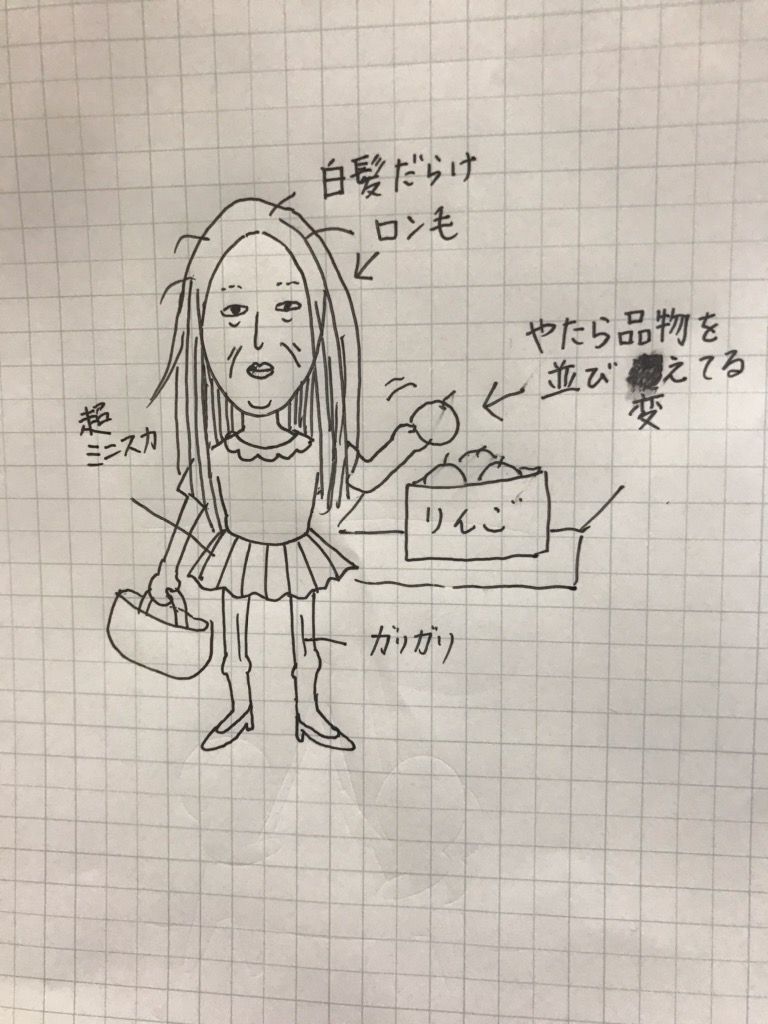 白髪だらけ
ロン毛
やたら品物を
並び変えてる
超
ミニスカ
りんご
ガリガリ